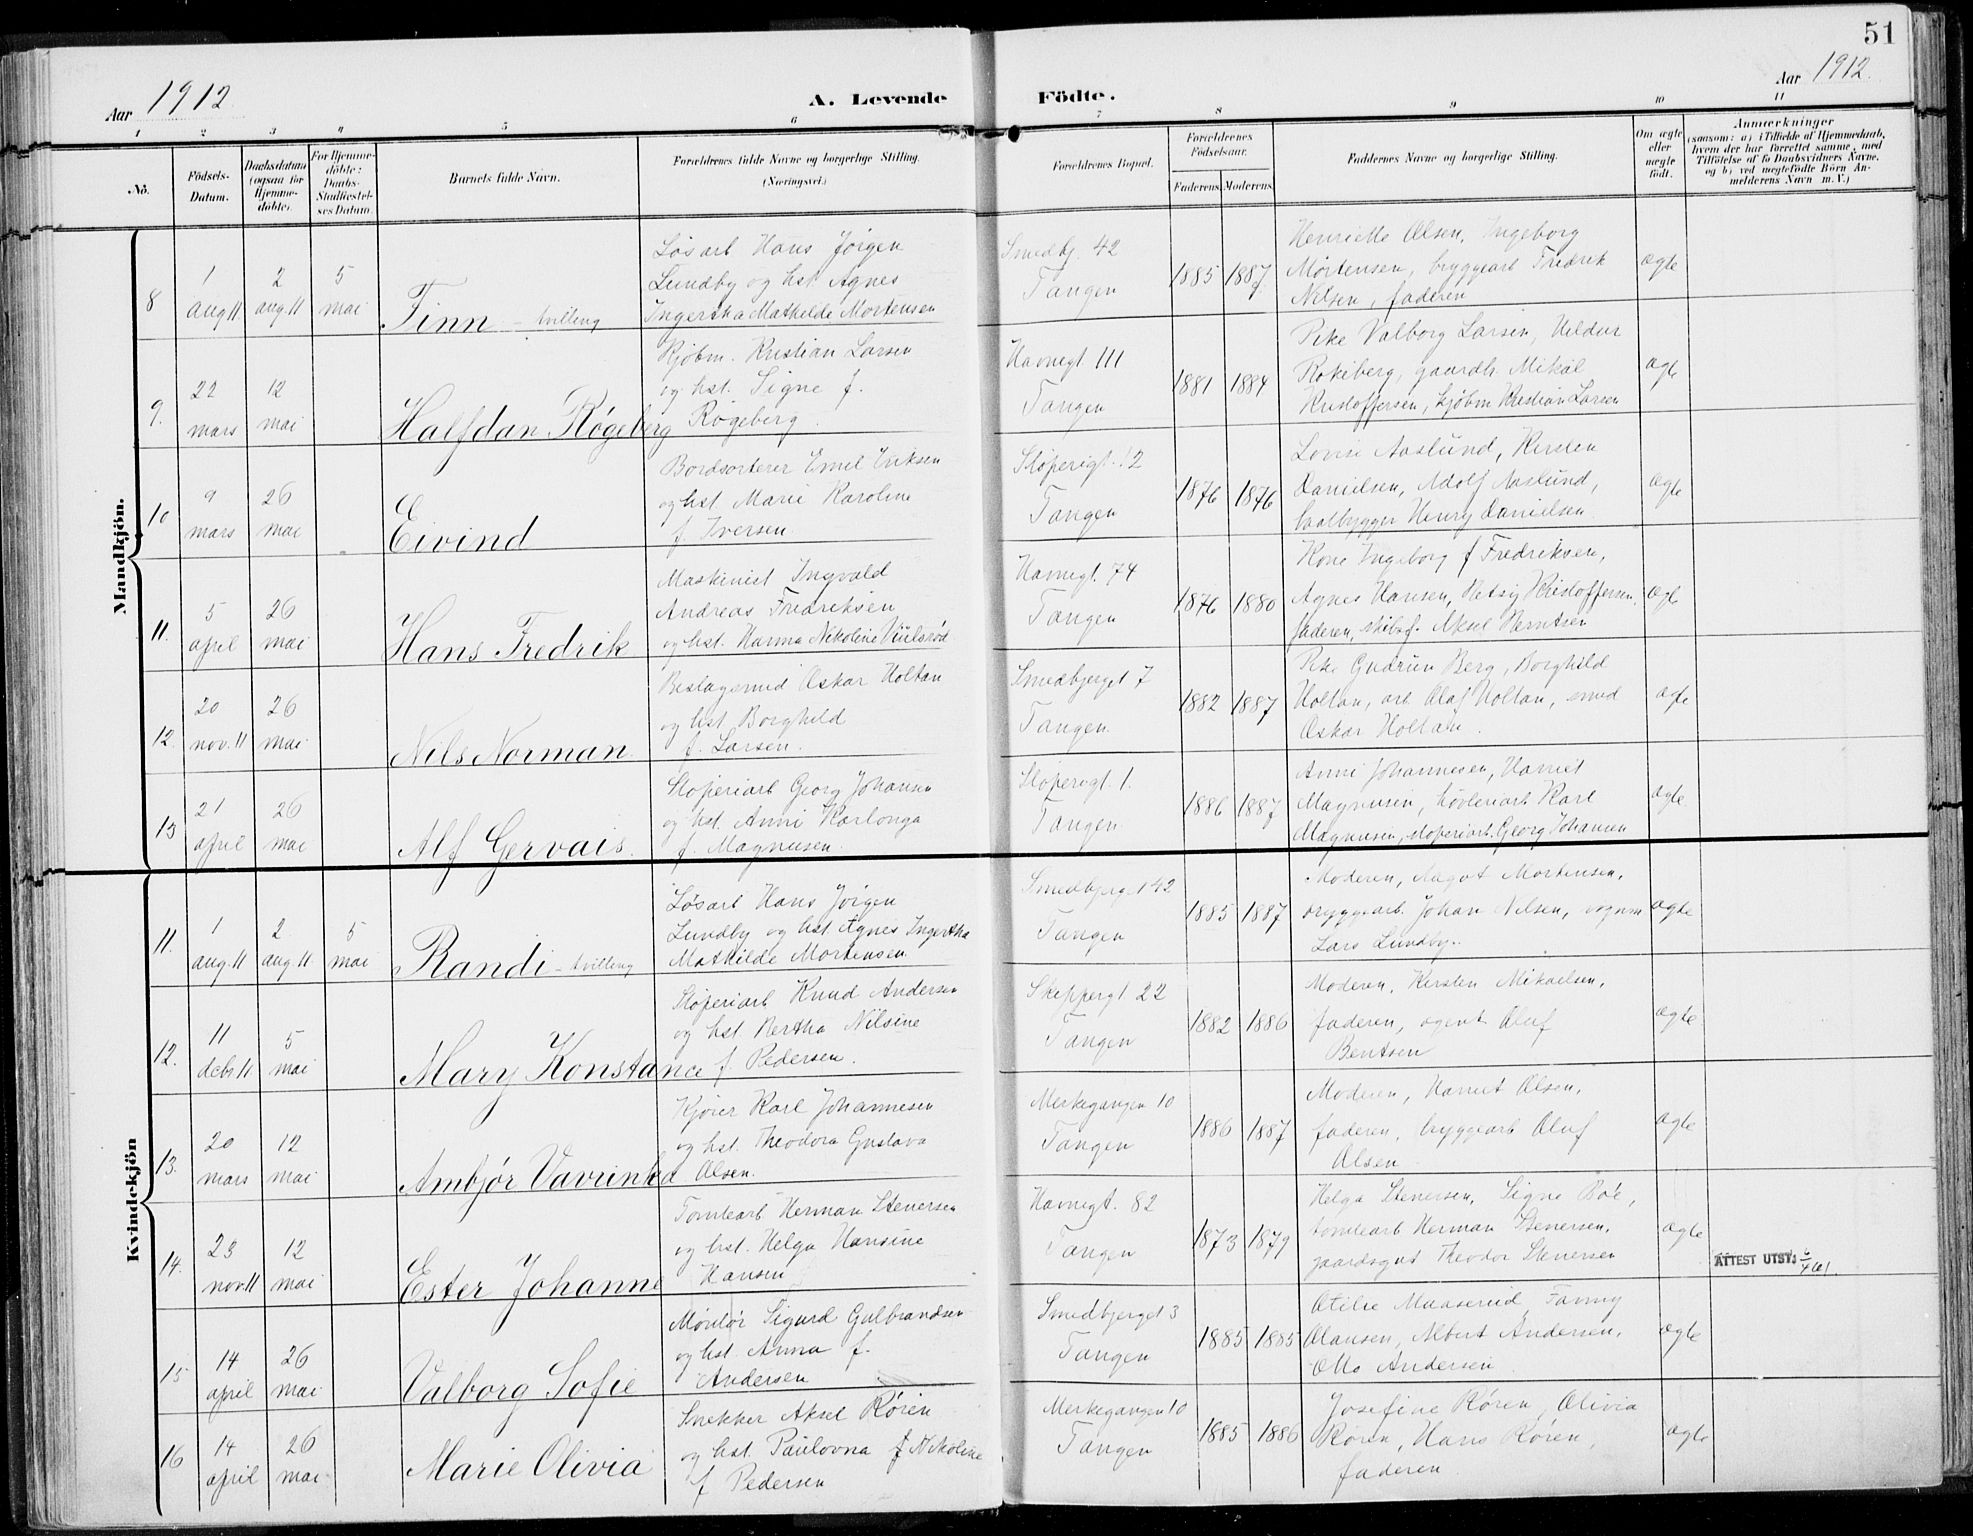 51
Aar 1912.
A. Levende
Födte.
Aar 1912.
1 2 3 4 5 6 7 8 9 10 11
No.
Födsels-Datum.
Daabsdatum (ogsaa for Hjemme-döbte).
For Hjemme-döbte: Daabs-Stadfæstel-ses Datum.
Barnets fulde Navn.
Forældrenes fulde Navne og borgerlige Stilling.
(Næringsvei.)
Forældrenes Bopæl.
Forældrenes Födselsaar.
Faderens. Moderens.
Faddernes Navne og borgerlige Stilling.
Om ægte eller uægte født.
Anmærkninger
(saasom: a) i Tilfælde af Hjemmedaab,
hvem der har forrettet samme, med
Tilföielse af to Daabsvidners Navne,
og b) ved uægtefödte Börn An-
melderens Navn m. V.)
Mandkjön.
8 1 aug 11 2 aug. 11 5 mai Finn - tvilling
Løsarb Hans Jörgen
Lundby og hst. Agnes
Ingertha Mathilde Mortensen
Smedbj. 42
Tangen
1885 1887
Henriette Olsen, Ingeborg
Mortensen, bryggearb Fredrik
Nilsen, faderen
ægte
9. 22 mars 12 mai Halfdan Røgeberg
Kjøbm. Kristian Larsen
og hst. Signe f.
Røgeberg.
Havnegt 111
Tangen
1881 1884
Pike Valborg Larsen, Hildur
Rokeberg, gaardb. Mikal
Kristoffersen, kjøbm Kristian Larsen
ægte
10 9 mars 26 mai Eivind
Bordsorterer Emil Eriksen
og hst. Marie Karoline
f. Iversen
Støperigt. 12
Tangen
1876 1876
Lovise Aaslund, Kirsten
Danielsen, Adolf Aaslund,
baatbygger Henry Danielsen
ægte
11. 5 april 26 mai Hans Fredrik
Maskinist Ingvald
Andreas Fredriksen
og hst. Hanna Nikoline
Havnegt. 74
Tangen
1876 1880
Kone Ingeborg f Fredriksen,
Agnes Hansen, Betsy Kristoffersen,
faderen, skibsf. Aksel Berntsen
ægte
12. 20 nov. 11 26 mai Nils Norman
Beslagsmed Oskar Holtan
og hst. Borghild
f. Larsen.
Smedbjerget 7
Tangen.
1882 1887
Pike Gudrun Berg, Borghild
Holtan, arb. Olaf Holtan, smed
Oskar Holtan.
ægte
13 21 april 26 mai Alf Gervais.
Støperiarb Georg Johansen
og hst. Anni Karlonga
f. Magnusen.
Støperigt. 1.
Tangen.
1886 1887
Anni Johannesen, Harriet
Magnusen, høvleriarb Karl
Magnusen, støperiarb. Georg Johansen
ægte
Kvindekjön
11. 1 aug. 11 2 aug. 11. 5 mai Randi - tvilling
Løsarb Hans Jörgen
Lundby og hst. Agnes Ingertha
Mathilde Mortensen.
Smedbjerget 42
Tangen
1885 1887
Moderen, Aagot Mortensen,
bryggearb. Johan Nilsen, vognm
Lars Lundby.
ægte
12. 11 decbr 11 5 mai Mary Konstance
Støperiarb Knud Andersen
og hst. Bertha Nilsine
f. Pedersen.
Skippergt 22
Tangen
1882 1886
Moderen, Kirsten Mikaelsen,
faderen, agent Oluf
Bentsen
ægte
13. 20 mars 12 mai Ambjör Vavrinka
Kjører Karl Johannesen
og hst. Theodora Gustava
Olsen.
Merkegangen 10
Tangen
1886 1887
Moderen, Harriet Olsen,
faderen, bryggearb Oluf
Olsen
ægte
14. 23 nov. 11 12 mai Ester Johanne
Tomtearb Herman Stenersen
og hst. Helga Hansine
Hansen
Havnegt. 82
Tangen
1873 1879
Helga Stenersen, Signe Boe,
tomtearb Herman Stenersen,
gaardsgut Theodor Stenersen
ægte
ATTEST UTST.
15 14 april 26 mai Valborg Sofie
Montør Sigurd Gulbrandsen
og hst. Anna f.
Andersen
Smedbjerget 3
Tangen
1885 1885
Otilie Maaserud, Fanny
Olausen, Albert Andersen,
Otto Andersen
ægte
16 14 april 26 mai Marie Olivia
Snekker Aksel Røren
og hst. Paulovna f Nikoline
f Pedersen
Merkegangen 10
Tangen
1885 1886
Josefine Røren, Olivia
Røren, Hans Røren,
faderen
ægte